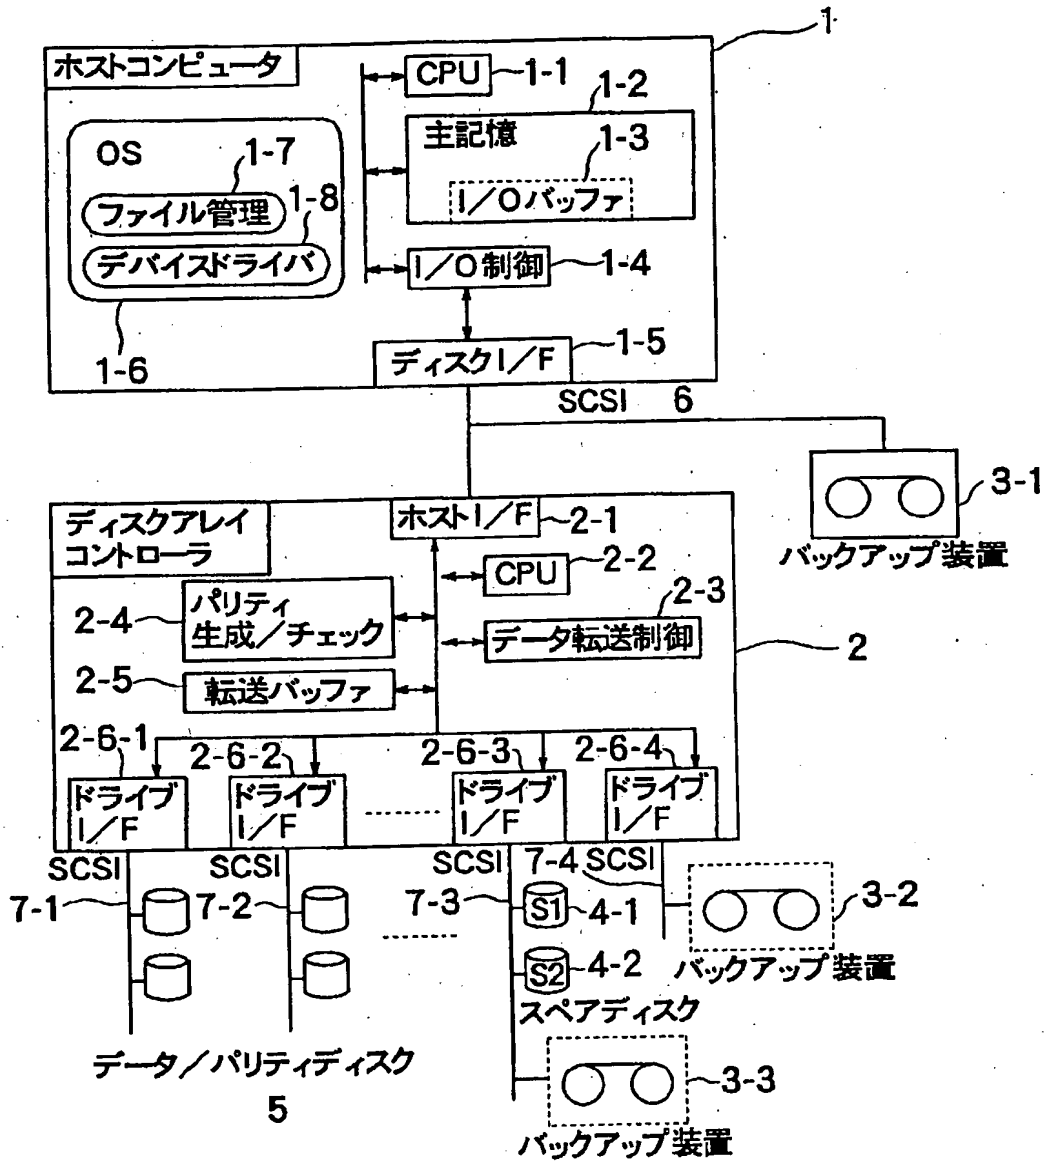 1
ホストコンピュータ
CPU
1-1
1-2
主記憶
1-3
I/Oバッファ
OS
1-7
ファイル管理
1-8
デバイスドライバ
I/O制御
1-4
1-6
ディスクI/F
1-5
SCSI
6
3-1
バックアップ装置
ディスクアレイ
コントローラ
ホストI/F
2-1
CPU
2-2
2-3
2-4
パリティ
生成/チェック
データ転送制御
2
2-5
転送バッファ
2-6-1
2-6-2
2-6-3
2-6-4
ドライブ
I/F
ドライブ
I/F
ドライブ
I/F
ドライブ
I/F
SCSI
SCSI
SCSI
7-4
SCSI
7-1
7-2
7-3
S1
4-1
3-2
S2
4-2
バックアップ装置
スペアディスク
データ/パリティディスク
5
3-3
バックアップ装置